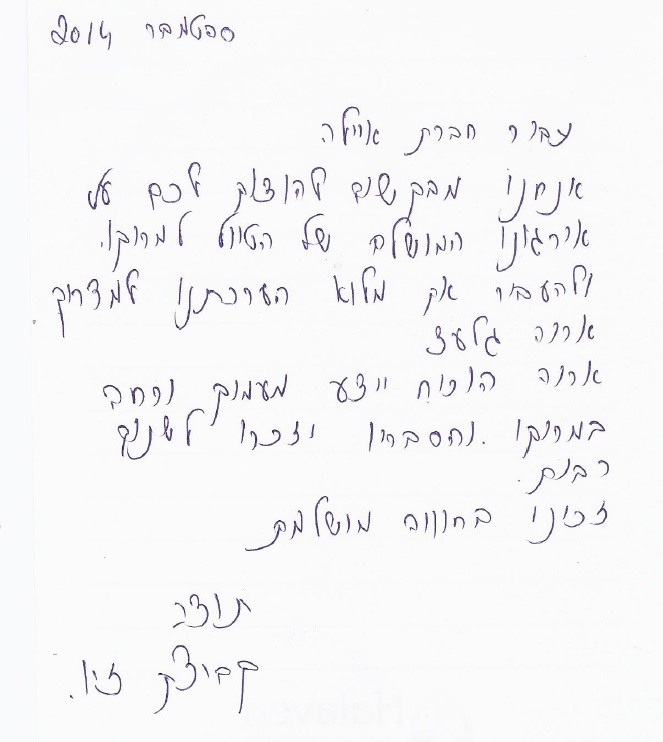 ספטמבר 2014
עבור חברת איילה
אנחנו מבקשים להודות לכם על
אירגונו המושלם של הטיול למרוקו.
ולהעביר את מלוא הערכתנו למדריך
ארנה גלעד
ארנה הוכיח יידע מעמיק ורחב
במרוקו. והסבריו יזכרו לשנים
רבות.
זכינו בחוויה מושלמת
תודה
קבוצת זיו.